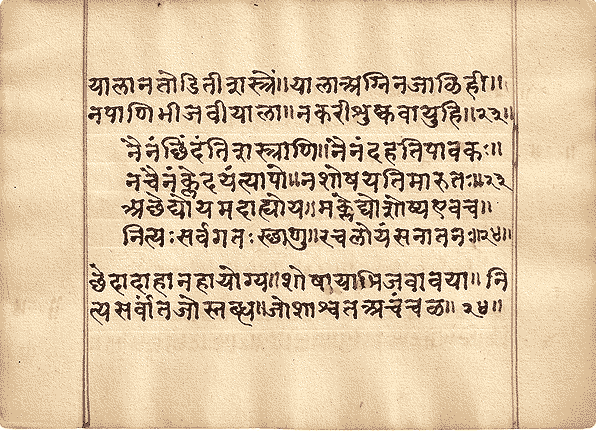 यालानतोडितीशस्त्रें॥यालाअग्निनजाळिही॥
नपाणिभीजवीयाला॥नकरीशुष्कवायुहि॥२३॥
नैनंछिंदंतिशस्त्राणि॥नैनंदहतिपावकः॥
नचैनंक्लेदयंत्यापो॥नशोषयतिमारुतः॥२३
अछेद्योयमदाह्योय॥मक्लेद्योशोष्यएवच॥
नित्यःसर्वगतःस्छाणु॥रचलोयंसनातनः॥२४॥
छेदादाहानहायोग्य॥शोषायाभिजवावया॥ नि
त्यसर्वांतजोस्तब्ध॥जोशाश्वतअचंचळ॥ २४॥